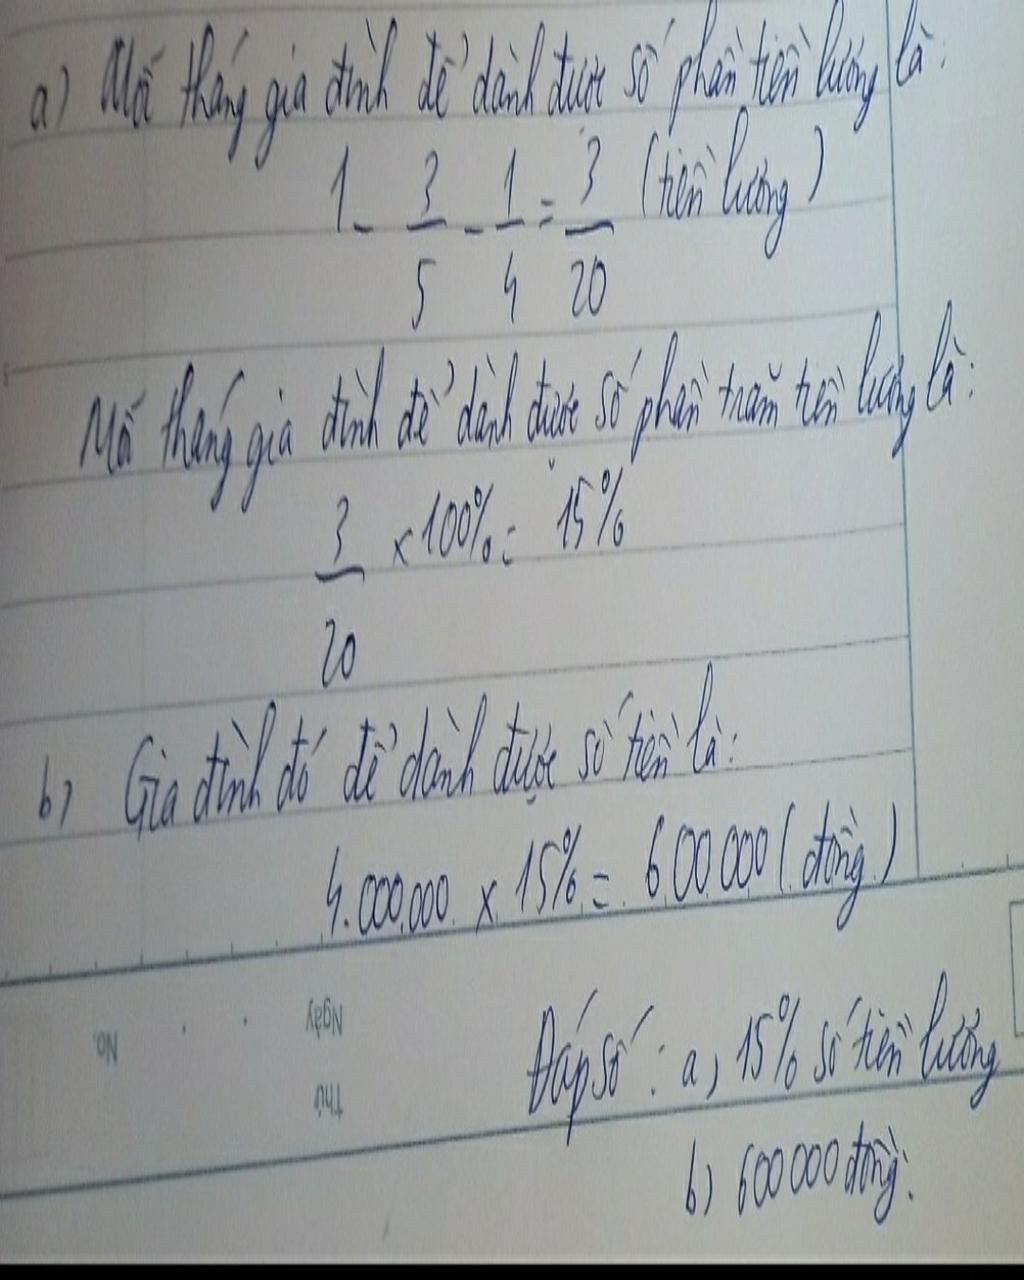 a) Mỗi tháng gia đình để dành được số phần tiền lương là:
1 - 3/5 - 1/4 = 3/20 (tiền lương)
Mỗi tháng gia đình để dành được số phần trăm tiền lương là:
3/20 x 100% = 15%
b) Gia đình đó để dành được số tiền là:
4.000.000 x 15% = 600 000 (đồng)
Đáp số: a, 15% số tiền lương
b) 600 000 đồng.
Ngày
No.
Thứ